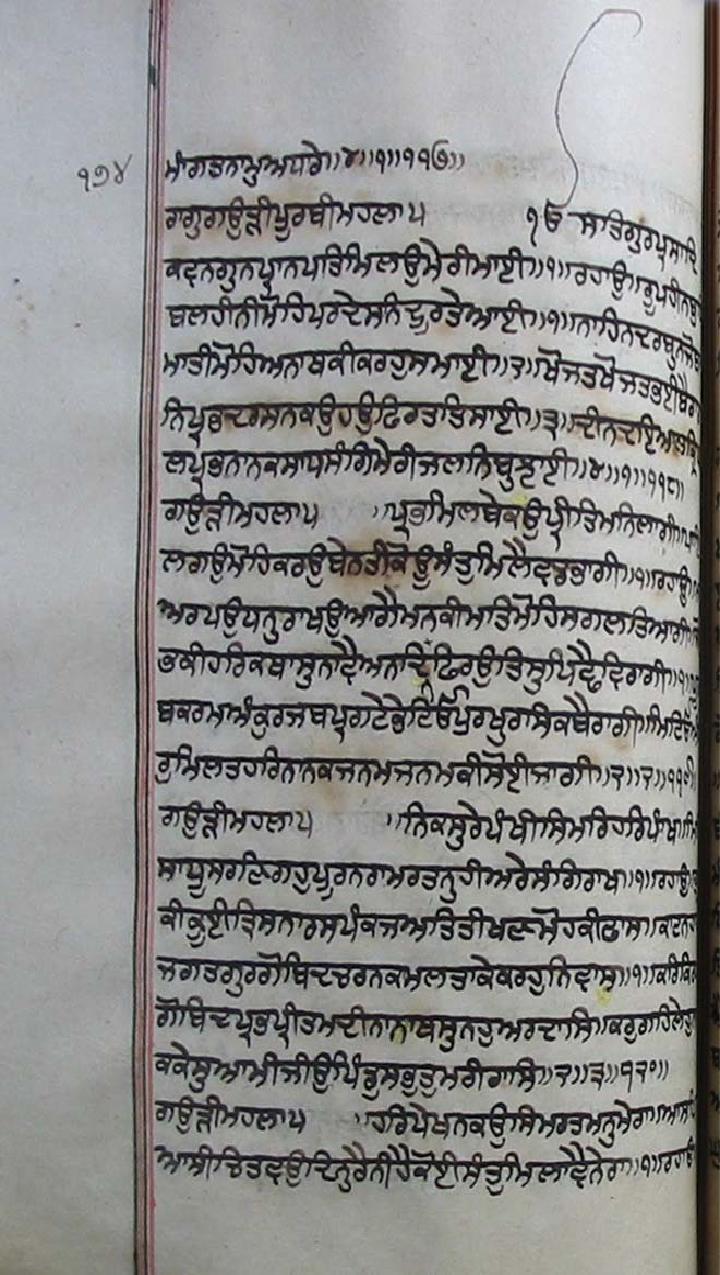 ੧੭੪
ਮਾਂਗਤਨਾਮੁਅਧਾਰੇ॥੪॥੧॥੧੧੭॥
ਰਾਗੁਗਉੜੀਪੂਰਬੀਮਹਲਾ੫ ੴ ਸਤਿਗੁਰਪ੍ਰਸਾਦਿ
ਕਵਨਗੁਨਪ੍ਰਾਨਪਤਿਮਿਲਉਮੇਰੀਮਾਈ॥੧॥ਰਹਾਉ॥ਰੂਪਹੀਨਬੁ
ਬਲਹੀਨੀਮੋਹਿਪਰਦੇਸਨਿਦੂਰਤੇਆਈ॥੧॥ਨਾਹਿਨਦਰਬੁਨਜੋਬ
ਮਾਤੀਮੋਹਿਅਨਾਥਕੀਕਰਹੁਸਮਾਈ॥੨॥ਖੋਜਤਖੋਜਤਭਈਬੈਰਾ
ਨਿਪ੍ਰਭਦਰਸਨਕਉਹਉਫਿਰਤਤਿਸਾਈ॥੩॥ਦੀਨਦਇਆਲਕ੍ਰਿ
ਲਪ੍ਰਭਨਾਨਕਸਾਧਸੰਗਿਮੇਰੀਜਲਨਿਬੁਝਾਈ॥੪॥੧॥੧੧੮॥
ਗਉੜੀਮਹਲਾ੫ ॥ਪ੍ਰਭਮਿਲਬੇਕਉਪ੍ਰੀਤਿਮਨਿਲਾਗੀ॥ਪਾਇ
ਲਗਉਮੋਹਿਕਰਉਬੇਨਤੀਕੋਊਸੰਤੁਮਿਲੈਵਡਭਾਗੀ॥੧॥ਰਹਾਉ॥
ਅਰਪਉਧਨੁਰਾਖਉਆਗੈਮਨਕੀਮਤਿਮੋਹਿਸਗਲਤਿਆਗੀ॥ਜੋ
ਭਕੀਹਰਿਕਥਾਸੁਨਾਵੈਅਨਦਿਨੁਫਿਰਉਤਿਸੁਪਿਛੈਵਿਰਾਗੀ॥੧॥ਪੂ
ਬਕਰਮਅੰਕੁਰਜਬਪ੍ਰਗਟੇਭੇਟਿਓਪੁਰਖੁਰਸਿਕਬੈਰਾਗੀ॥ਮਿਟਿਓਅੰ
ਰੁਮਿਲਤਹਰਿਨਾਨਕਜਨਮਜਨਮਕੀਸੋਈਜਾਗੀ॥੨॥੨॥੧੧੯॥
ਗਉੜੀਮਹਲਾ੫ ॥ਨਿਕਸੁਰੇਪੰਖੀਸਿਮਰਿਹਰਿਪਾਂਖ॥ਮਿ
ਸਾਧੂਸਰਣਿਗਹੁਪੂਰਨਰਾਮਰਤਨੁਹੀਅਰੇਸੰਗਿਰਾਖੁ॥੧॥ਰਹਾਉ॥
ਕੀਕੂਈਤ੍ਰਿਸਨਾਰਸਪੰਕਜਅਤਿਤੀਖਣਮੋਹਕੀਫਾਸ॥ਕਾਟਨਹ
ਜਗਤਗੁਰਗੋਬਿਦਚਰਨਕਮਲਤਾਕੇਕਰਹੁਨਿਵਾਸ॥੧॥ਕਰਿਕਿਰ
ਗੋਬਿੰਦਪ੍ਰਭਪ੍ਰੀਤਮਦੀਨਾਨਾਥਸੁਨਹੁਅਰਦਾਸਿ॥ਕਰੁਗਹਿਲੇਹੁ
ਕਕੇਸੁਆਮੀਜੀਉਪਿੰਡੁਸਭੁਤੁਮਰੀਰਾਸਿ॥੨॥੩॥੧੨੦॥
ਗਉੜੀਮਹਲਾ੫ ॥ਹਰਿਪੇਖਨਕਉਸਿਮਰਤਮਨੁਮੇਰਾ॥ਆਸਪਿ
ਆਸੀਚਿਤਵਉਦਿਨੁਰੈਨੀਹੈਕੋਈਸੰਤੁਮਿਲਾਵੈਨੇਰਾ॥੧॥ਰਹਾਉ